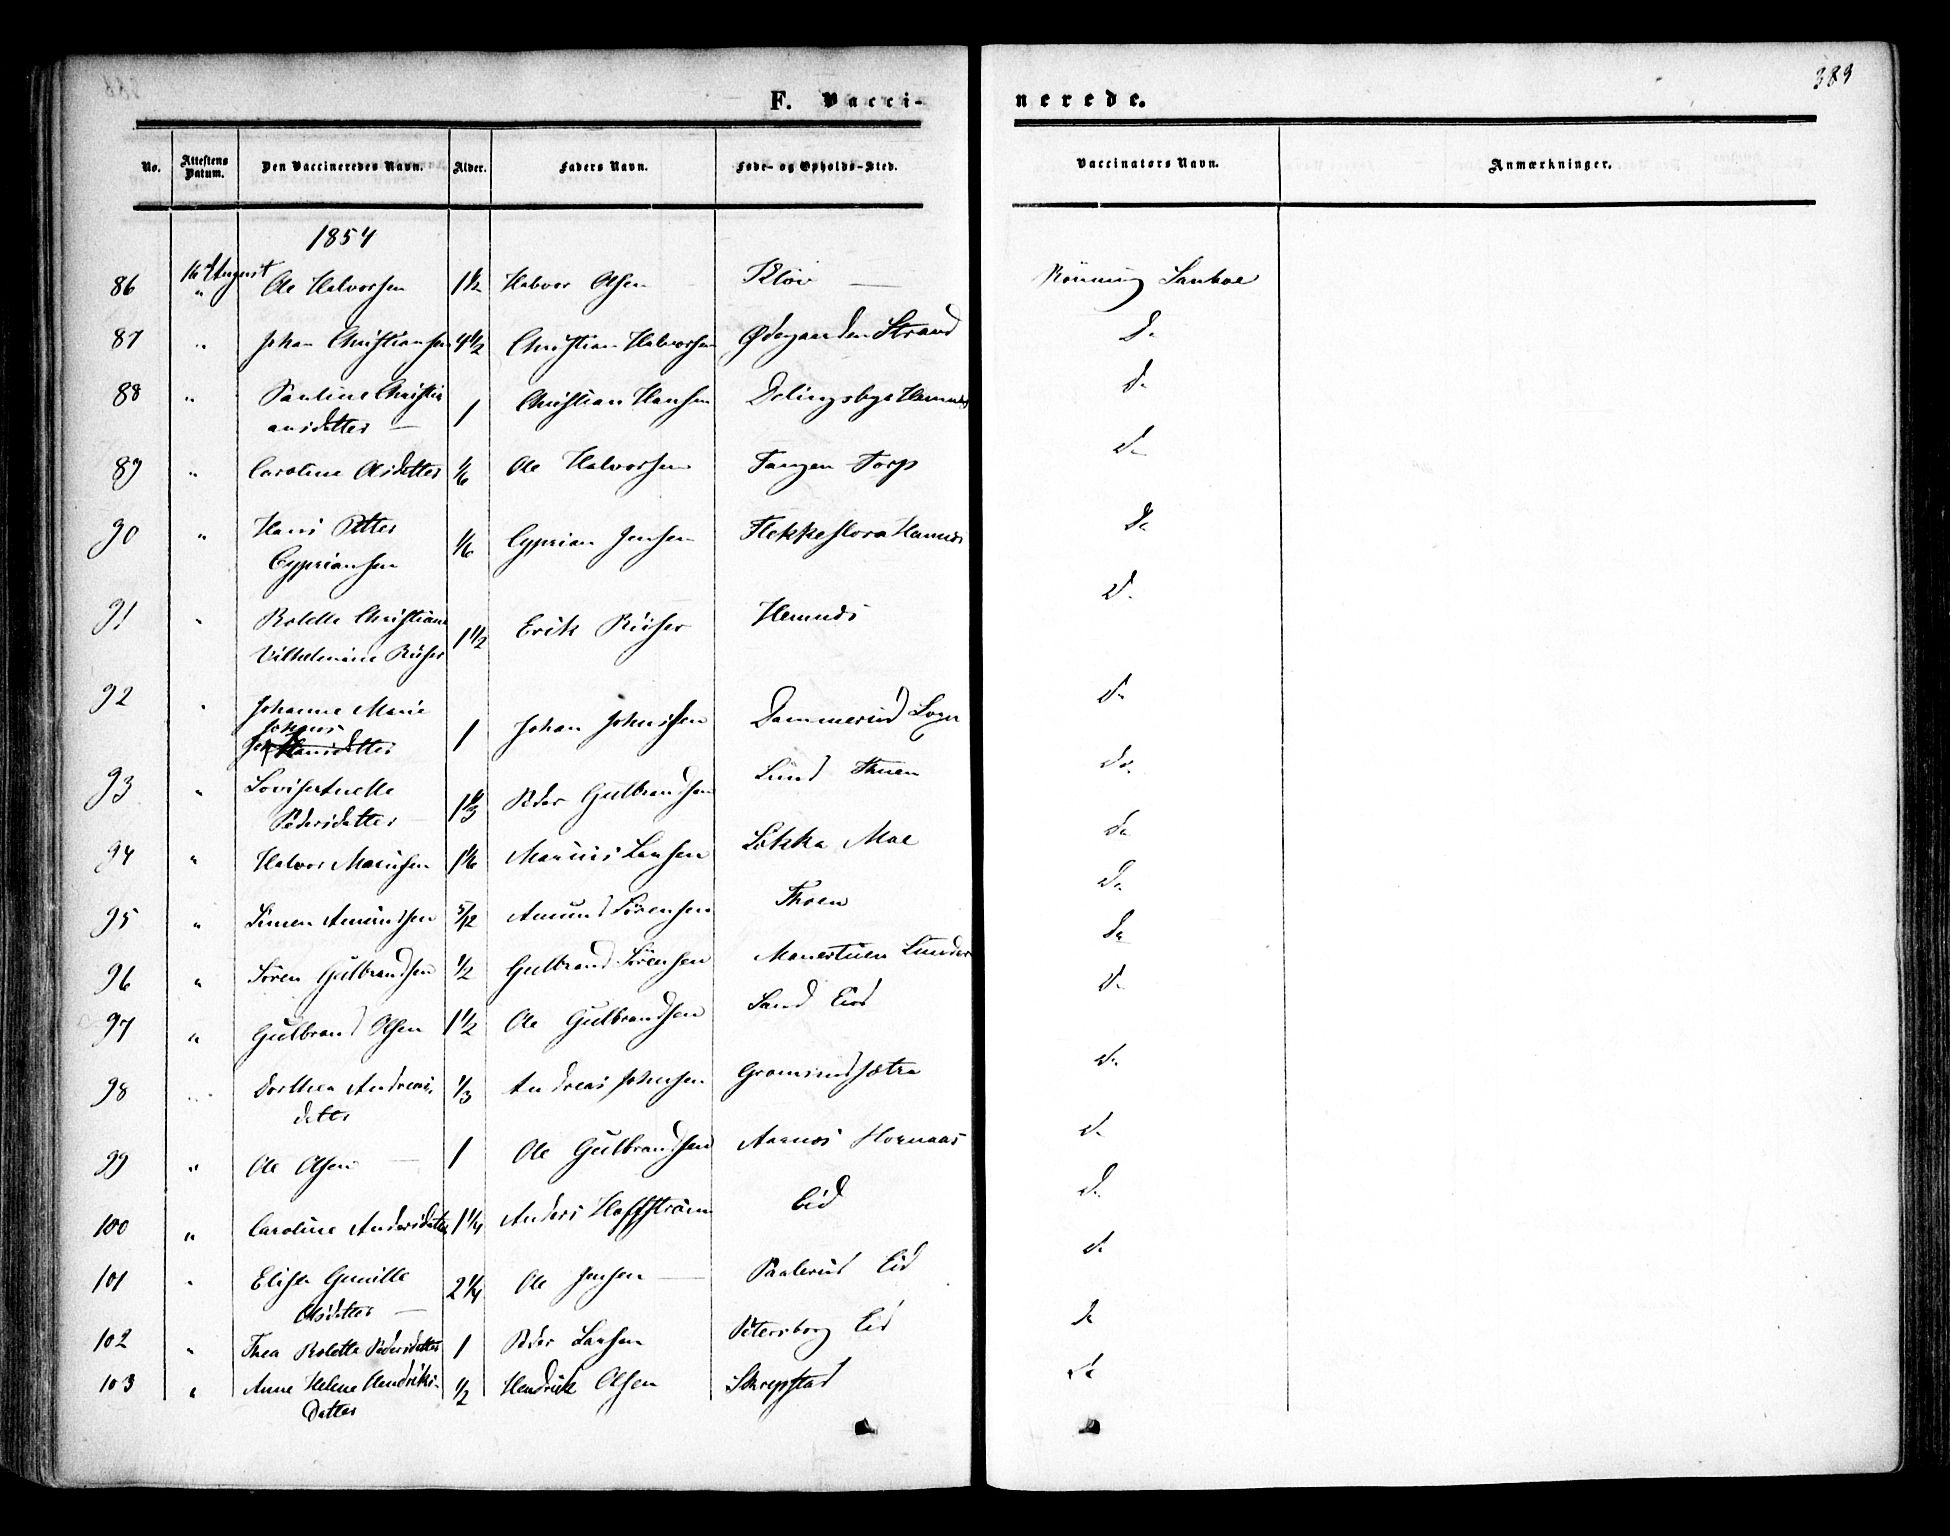 383
F. Vacci-
nerede.
No.
Attestens Datum.
Den Vaccineredes Navn.
Alder.
Faders Navn.
Føde- og Opholds-Sted.
Vaccinators Navn.
Anmærkninger.
1854
86 16d August " Ole Halvorsen 1½ Halvor Olsen Kløv — Rönning
87 " Johan Christiansen 4½ Christian Halvorsen Ødegaarden Strand Do
88 " Pauline Christi
ansdatter — 1 Christian Hansen Delingsbye Hemnæs Do
89 " Caroline Olsdatter 1/6 Ole Halvorsen Tangen Torp Do
90 " Hans Petter
Cypriansen 1/6 Cyprian Jensen Flekkeflora Hemnæs Do
91 " Bolette Christiane
Vilhelmine 1½ Erik Hemnæs Do
92 " Johanne Marie
Johans
Hansdatter 1 Johan Johnssen Dammerud Do
93 " Lovise Anette
Pedersdatter — 1⅓ Peder Gulbrandsen Lund Thuen Do
94 " Halvor Mariusen 1 1/6 Marius Larsen Løkka Moe Do
95 " Simen Amundsen 5/12 Amund Sörensen Thoen Do
96 " Sören Gulbrandsen ½ Gulbrand Sörensen Do
97 " Gulbrand Olsen 1½ Ole Gulbrandsen Sand Eid Do
98 " Dorthea Andreas-
datter ⅓ Andreas Johnsen Do
99 " Ole Olsen — 1 Ole Gulbrandsen Aarnæs Do
100 " Caroline Andersdatter 1¼ Anders Haffström Eid Do
101 " Elise Gunille
Olsdatter — 2¼ Ole Jensen — Paalerud Eid Do
102 " Thea Bolette Pedersdatter 1 Peder Larsen Petersborg Eid Do
103 " Anne Helene Hendriks-
Datter ½ Hendrick Olsen Skrepstad Do